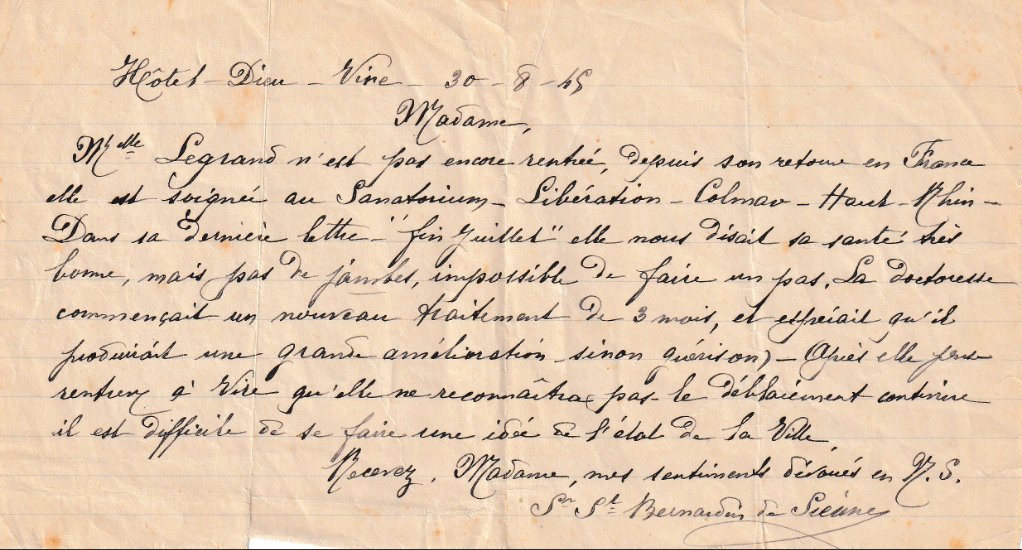 Hôtel-Dieu - Vire - 30-8-45
Madame,
Melle Legrand n'est pas encore rentrée, depuis son retour en France
elle est soignée au Sanatorium - Libération - Colmar - Haut-Rhin -
Dans sa dernière lettre - "fin Juillet" elle nous disait sa santé très
bonne, mais pas de jambes, impossible de faire un pas. La doctoresse
commençait un nouveau traitement de 3 mois, et espérait qu'il
produirait une grande amélioration - sinon guérison) - Après elle pense
rentrer à Vire qu'elle ne reconnaîtra pas le déblaiement continue
il est difficile de se faire une idée de l'état de la Ville
Recevez, Madame, mes sentiments dévoués en N. S.
Sr St Bernardin de Sienne